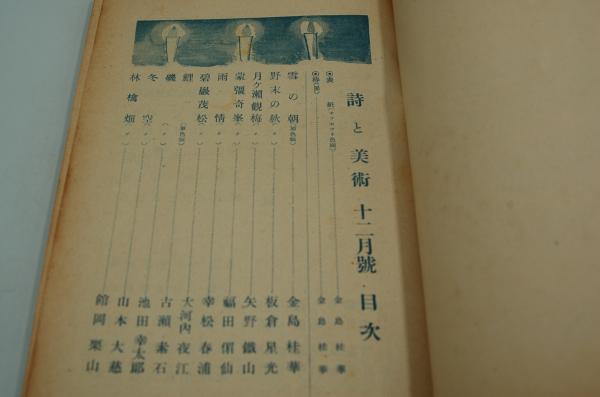 詩と美術 十二月號・目次
◉表紙(オフセツト色刷)……金島桂華
◉扉(〃)……金島桂華
雪の朝(原色版)……金島桂華
野末の秋(〃)……板倉星光
月ケ瀬觀梅(〃)……矢野鐵山
蒙彌奇峯(〃)……福田佣仙
雨情(〃)……幸松春浦
碧巖茂松(〃)……大河內夜江
鯉(單色版)……古瀬素石
磯(〃)……池田幸太郞
冬空(〃)……山本大慈
林檎畑(〃)……館岡栗山